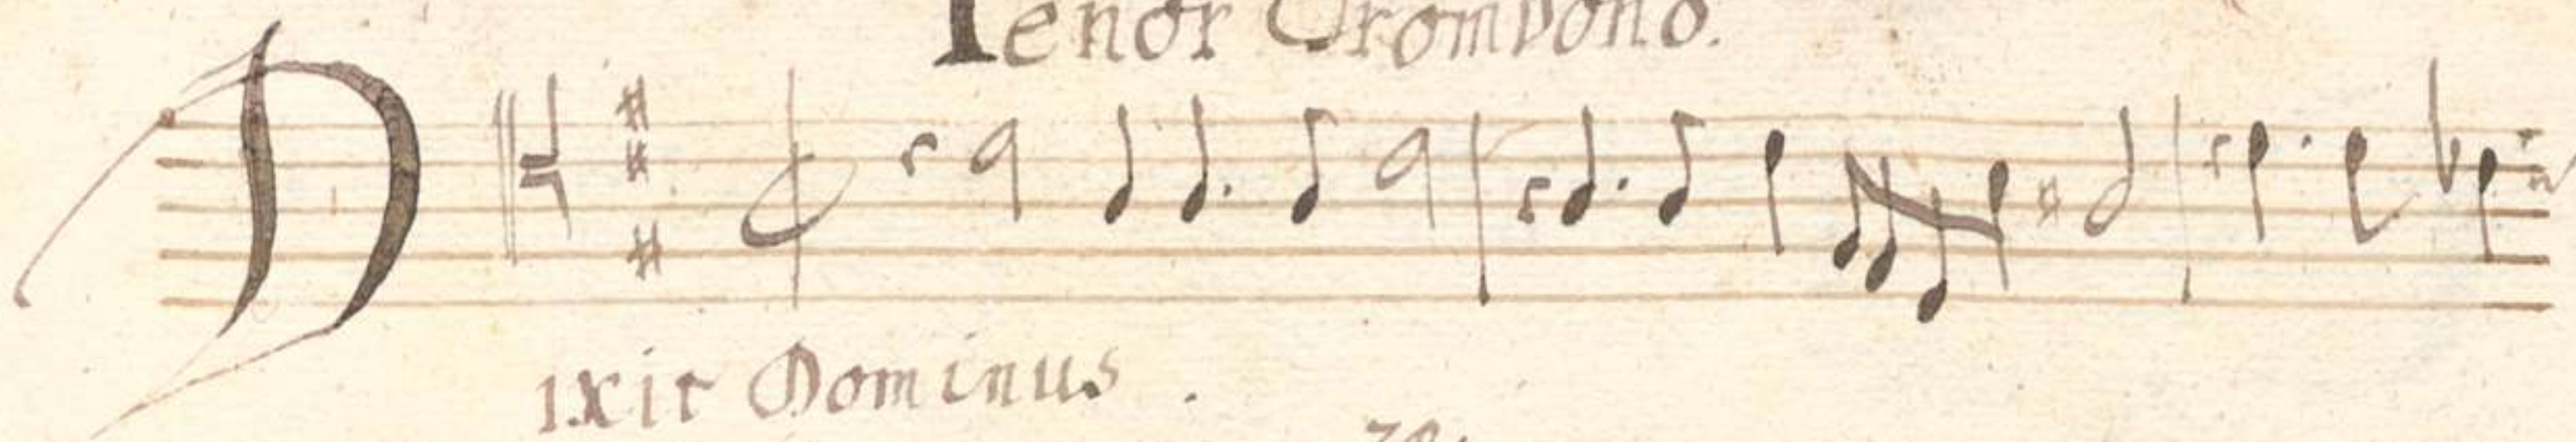 Tenor Trombono.
Dixit Dominus.